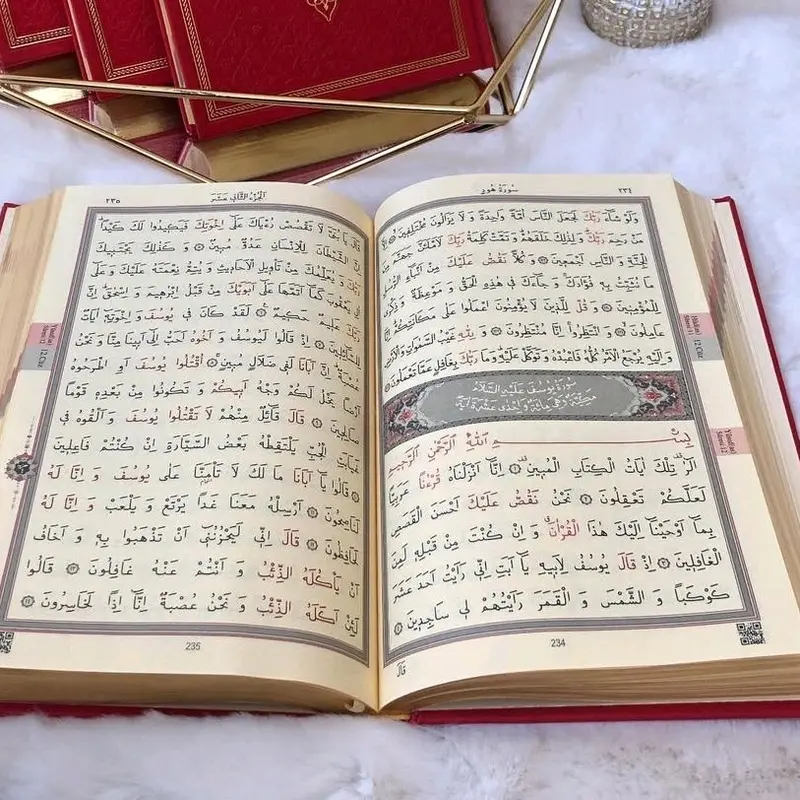 سورة هود
٢٣٤
وَلَوْ شَاءَ رَبُّكَ لَجَعَلَ النَّاسَ اُمَّةً وَاحِدَةً وَ لَا يَزَالُونَ مُخْتَلِفِينَ ۞ اِلَّا
مَنْ رَحِمَ رَبُّكَ وَ لِذٰلِكَ خَلَقَهُمْ وَ تَمَّتْ كَلِمَةُ رَبِّكَ لَاَمْلَئَنَّ جَهَنَّمَ مِنَ
الْجِنَّةِ وَ النَّاسِ اَجْمَعِينَ ۞ وَ كُلًّا نَقُصُّ عَلَيْكَ مِنْ اَنْبَاءِ الرُّسُلِ
مَا نُثَبِّتُ بِهِ فُؤَادَكَ وَ جَاءَكَ فِي هٰذِهِ الْحَقُّ وَ مَوْعِظَةٌ وَ ذِكْرٰى
لِلْمُؤْمِنِينَ ۞ وَ قُلْ لِلَّذِينَ لَا يُؤْمِنُونَ اعْمَلُوا عَلٰى مَكَانَتِكُمْ اِنَّا
عَامِلُونَ ۞ وَ انْتَظِرُوا اِنَّا مُنْتَظِرُونَ ۞ وَ لِلّٰهِ غَيْبُ السَّمٰوَاتِ وَ الْاَرْضِ
وَ اِلَيْهِ يُرْجَعُ الْاَمْرُ كُلُّهُ فَاعْبُدْهُ وَ تَوَكَّلْ عَلَيْهِ وَ مَا رَبُّكَ بِغَافِلٍ عَمَّا تَعْمَلُونَ ۞
سورة يوسف عليه السلام
مكية وهي مائة واحدى عشرة آية
بِسْمِ اللّٰهِ الرَّحْمٰنِ الرَّحِيمِ
الٓرٰ تِلْكَ اٰيَاتُ الْكِتَابِ الْمُبِينِ ۞ اِنَّا اَنْزَلْنَاهُ قُرْءٰنًا عَرَبِيًّا
لَعَلَّكُمْ تَعْقِلُونَ ۞ نَحْنُ نَقُصُّ عَلَيْكَ اَحْسَنَ الْقَصَصِ
بِمَا اَوْحَيْنَا اِلَيْكَ هٰذَا الْقُرْاٰنَ وَ اِنْ كُنْتَ مِنْ قَبْلِهِ لَمِنَ
الْغَافِلِينَ ۞ اِذْ قَالَ يُوسُفُ لِاَبِيهِ يَا اَبَتِ اِنِّي رَاَيْتُ اَحَدَ عَشَرَ
كَوْكَبًا وَ الشَّمْسَ وَ الْقَمَرَ رَاَيْتُهُمْ لِي سَاجِدِينَ ۞
234
قَالَ
Hûd Suresi 11
12.Cüz
Yûsuf Suresi 12
الجزء الثاني عشر
٢٣٥
قَالَ يَا بُنَيَّ لَا تَقْصُصْ رُءْيَاكَ عَلٰى اِخْوَتِكَ فَيَكِيدُوا لَكَ كَيْدًا
اِنَّ الشَّيْطَانَ لِلْاِنْسَانِ عَدُوٌّ مُبِينٌ ۞ وَ كَذٰلِكَ يَجْتَبِيكَ
رَبُّكَ وَ يُعَلِّمُكَ مِنْ تَأْوِيلِ الْاَحَادِيثِ وَ يُتِمُّ نِعْمَتَهُ عَلَيْكَ وَ عَلٰى
اٰلِ يَعْقُوبَ كَمَا اَتَمَّهَا عَلٰى اَبَوَيْكَ مِنْ قَبْلُ اِبْرٰهِيمَ وَ اِسْحٰقَ اِنَّ
رَبَّكَ عَلِيمٌ حَكِيمٌ ۞ لَقَدْ كَانَ فِي يُوسُفَ وَ اِخْوَتِهِ اٰيَاتٌ
لِلسَّائِلِينَ ۞ اِذْ قَالُوا لَيُوسُفُ وَ اَخُوهُ اَحَبُّ اِلٰى اَبِينَا مِنَّا وَ نَحْنُ
عُصْبَةٌ اِنَّ اَبَانَا لَفِي ضَلَالٍ مُبِينٍ ۞ اُقْتُلُوا يُوسُفَ اَوِ اطْرَحُوهُ
اَرْضًا يَخْلُ لَكُمْ وَجْهُ اَبِيكُمْ وَ تَكُونُوا مِنْ بَعْدِهِ قَوْمًا
صَالِحِينَ ۞ قَالَ قَائِلٌ مِنْهُمْ لَا تَقْتُلُوا يُوسُفَ وَ اَلْقُوهُ فِي
غَيَابَتِ الْجُبِّ يَلْتَقِطْهُ بَعْضُ السَّيَّارَةِ اِنْ كُنْتُمْ فَاعِلِينَ
۞ قَالُوا يَا اَبَانَا مَا لَكَ لَا تَأْمَنَّا عَلٰى يُوسُفَ وَ اِنَّا لَهُ
لَنَاصِحُونَ ۞ اَرْسِلْهُ مَعَنَا غَدًا يَرْتَعْ وَ يَلْعَبْ وَ اِنَّا لَهُ
لَحَافِظُونَ ۞ قَالَ اِنِّي لَيَحْزُنُنِي اَنْ تَذْهَبُوا بِهِ وَ اَخَافُ
اَنْ يَأْكُلَهُ الذِّئْبُ وَ اَنْتُمْ عَنْهُ غَافِلُونَ ۞ قَالُوا
لَئِنْ اَكَلَهُ الذِّئْبُ وَ نَحْنُ عُصْبَةٌ اِنَّا اِذًا لَخَاسِرُونَ ۞
235
Yûsuf Suresi 12
12.Cüz